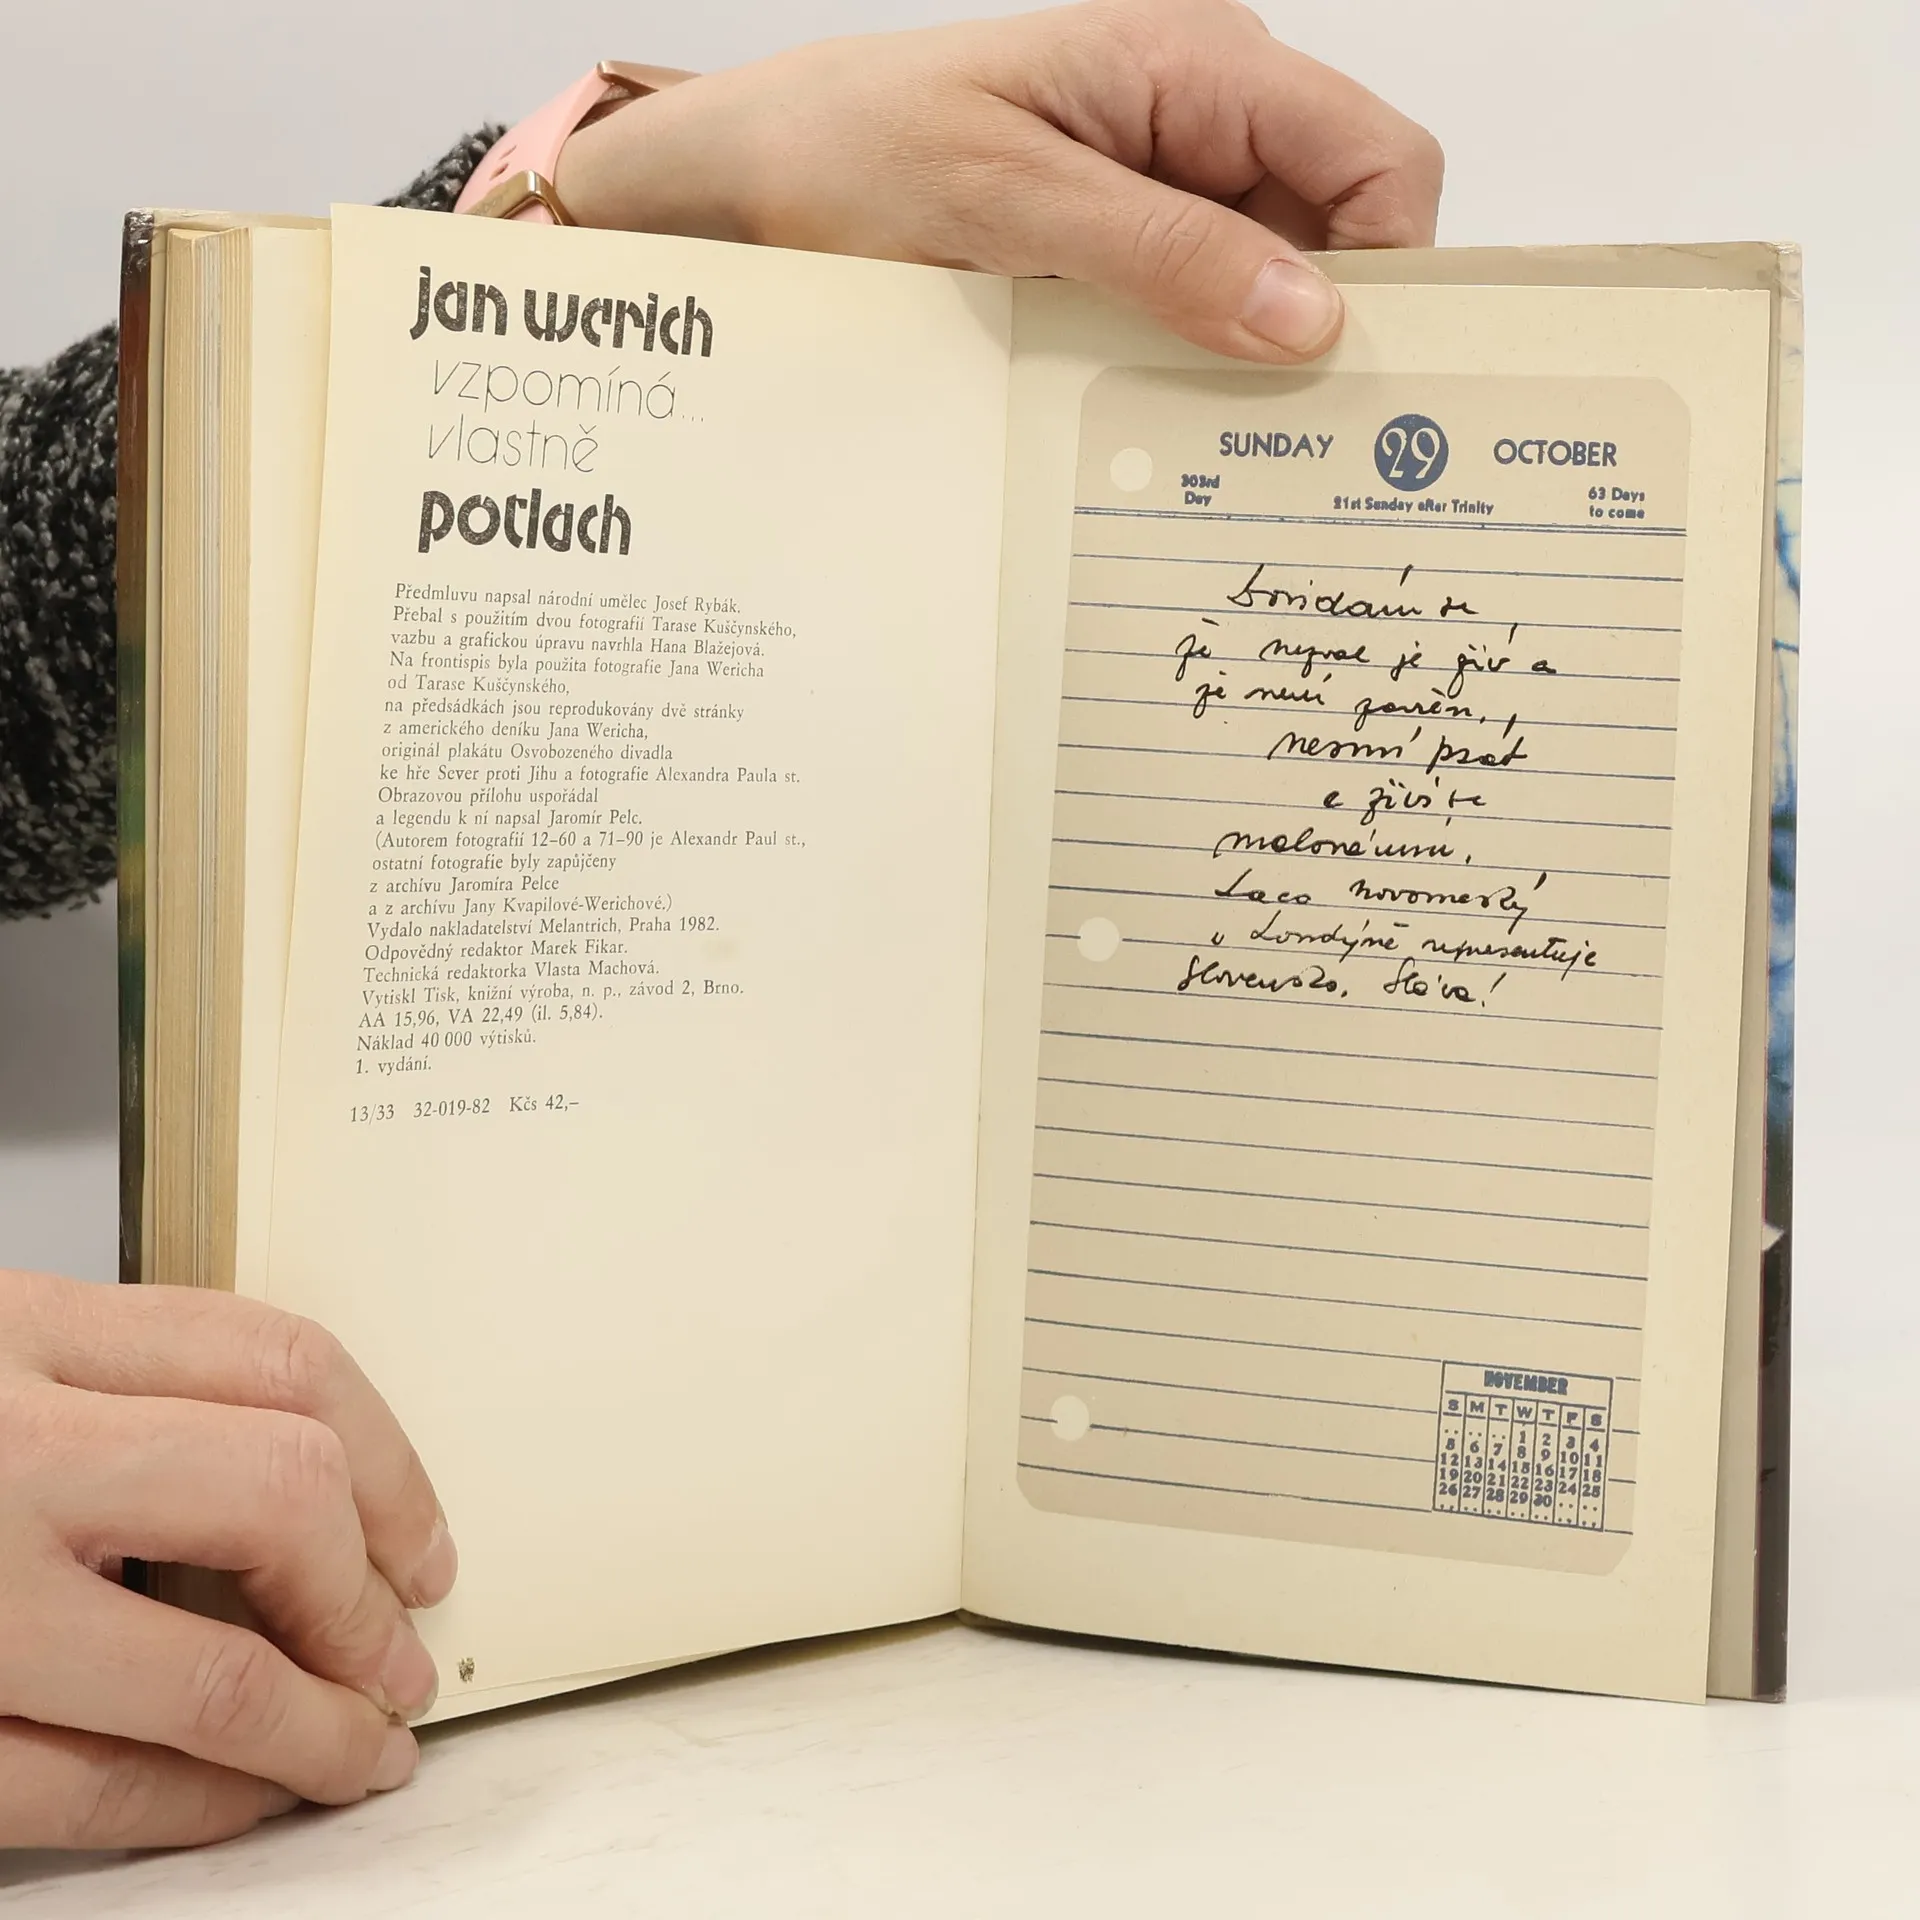 jan werich
vzpomíná...
vlastně
potlach
Předmluvu napsal národní umělec Josef Rybák.
Přebal s použitím dvou fotografií Tarase Kuščynského,
vazbu a grafickou úpravu navrhla Hana Blažejová.
Na frontispis byla použita fotografie Jana Wericha
od Tarase Kuščynského,
na předsádkách jsou reprodukovány dvě stránky
z amerického deníku Jana Wericha,
originál plakátu Osvobozeného divadla
ke hře Sever proti Jihu a fotografie Alexandra Paula st.
Obrazovou přílohu uspořádal
a legendu k ní napsal Jaromír Pelc.
(Autorem fotografií 12–60 a 71–90 je Alexandr Paul st.,
ostatní fotografie byly zapůjčeny
z archívu Jaromíra Pelce
a z archívu Jany Kvapilové-Werichové.)
Vydalo nakladatelství Melantrich, Praha 1982.
Odpovědný redaktor Marek Fikar.
Technická redaktorka Vlasta Machová.
Vytiskl Tisk, knižní výroba, n. p., závod 2, Brno.
AA 15,96, VA 22,49 (il. 5,84).
Náklad 40 000 výtisků.
1. vydání.
13/33 32-019-82 Kčs 42,–
SUNDAY 29 OCTOBER
303rd Day 21st Sunday after Trinity 63 Days to come
Dovídám se,
že nezval je živ a
že není zavřen,
nesmí psát
a živí se
malováním.
Laco novomeský
v Londýně representuje
Slovensko. Sláva!
NOVEMBER
S M T W T F S
.. .. .. 1 2 3 4
5 6 7 8 9 10 11
12 13 14 15 16 17 18
19 20 21 22 23 24 25
26 27 28 29 30 .. ..
.. .. .. .. .. .. ..